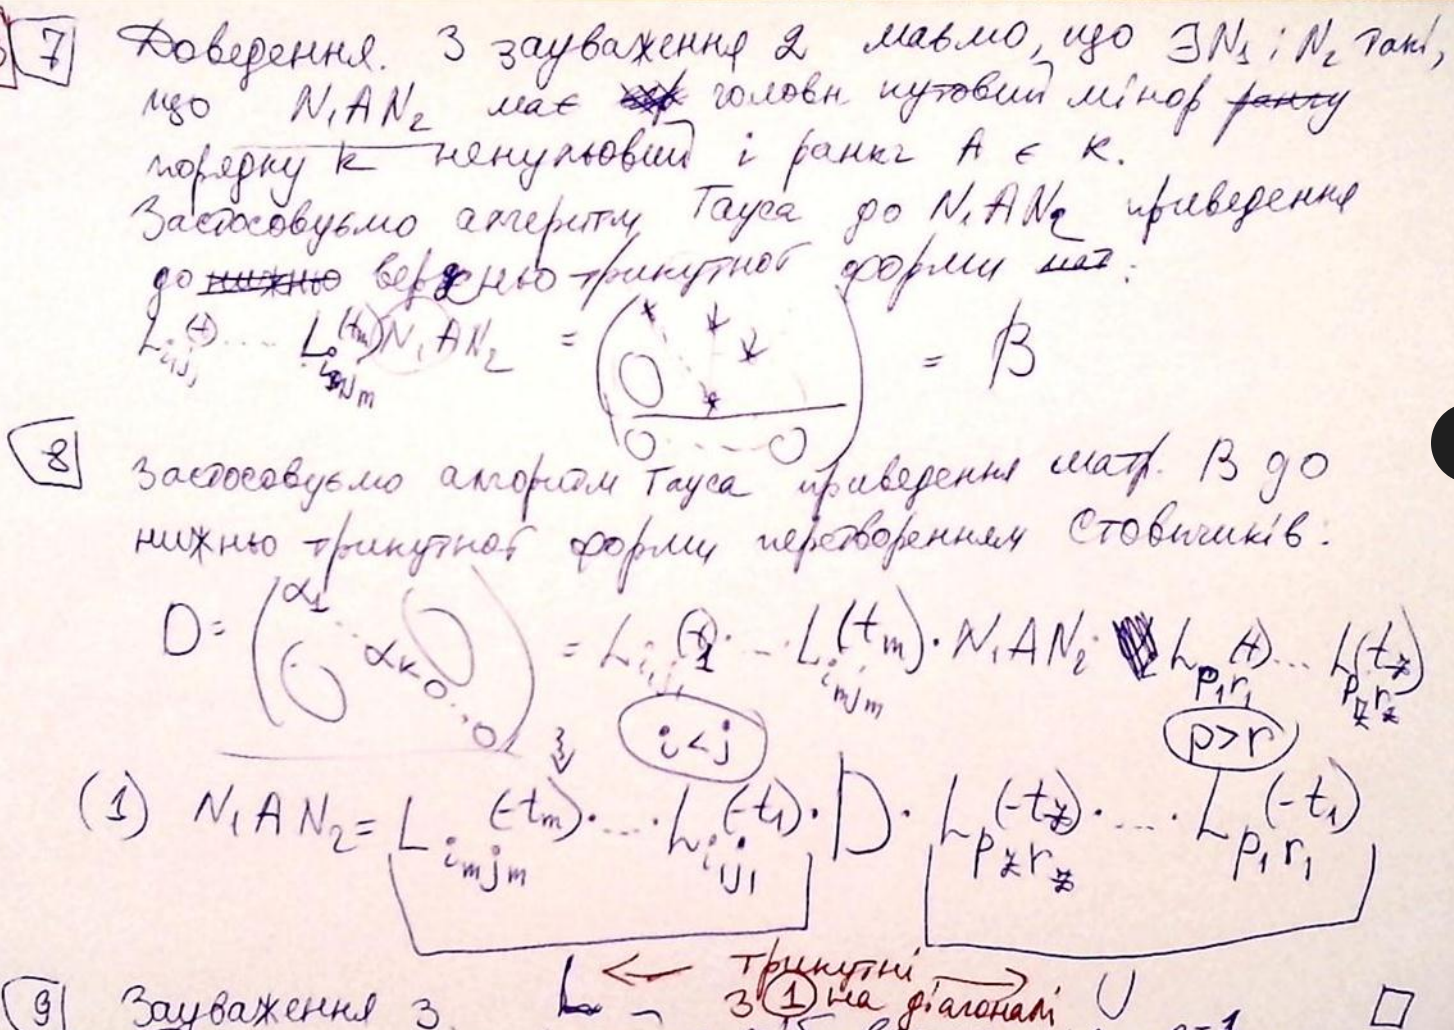 7 Доведення. З зауваження 2 маємо, що ∃N₁ і N₂ такі,
що N₁AN₂ має головн кутовий мінор рангу
порядку k ненульовий і ранг A є k.
Застосовуємо алгоритм Гауса до N₁AN₂ приведення
до нижньо верхньо трикутної форми мат:
L_{i₁j₁}(t) ... L_{iₘjₘ}(tₘ) N₁AN₂ = ( * * * * 0 0 ... 0 ) = B
8 Застосовуємо алгоритм Гауса приведення матр. B до
нижньо трикутної форми перетворенням стовпчиків:
D = ( α₁ ... αₖ 0 ... 0 ) = L_{i₁j₁}(t₁) · ... · L_{iₘjₘ}(tₘ) · N₁AN₂ · L_{p₁r₁}(t) ... L_{p_z r_z}(t_z)
i<j p>r
(1) N₁AN₂ = L_{iₘjₘ}(-tₘ) · ... · L_{i₁j₁}(-t₁) · D · L_{p_z r_z}(-t_z) · ... · L_{p₁r₁}(-t₁)
L ← трикутні → U
з 1 на діагоналі □
9 Зауваження 3.